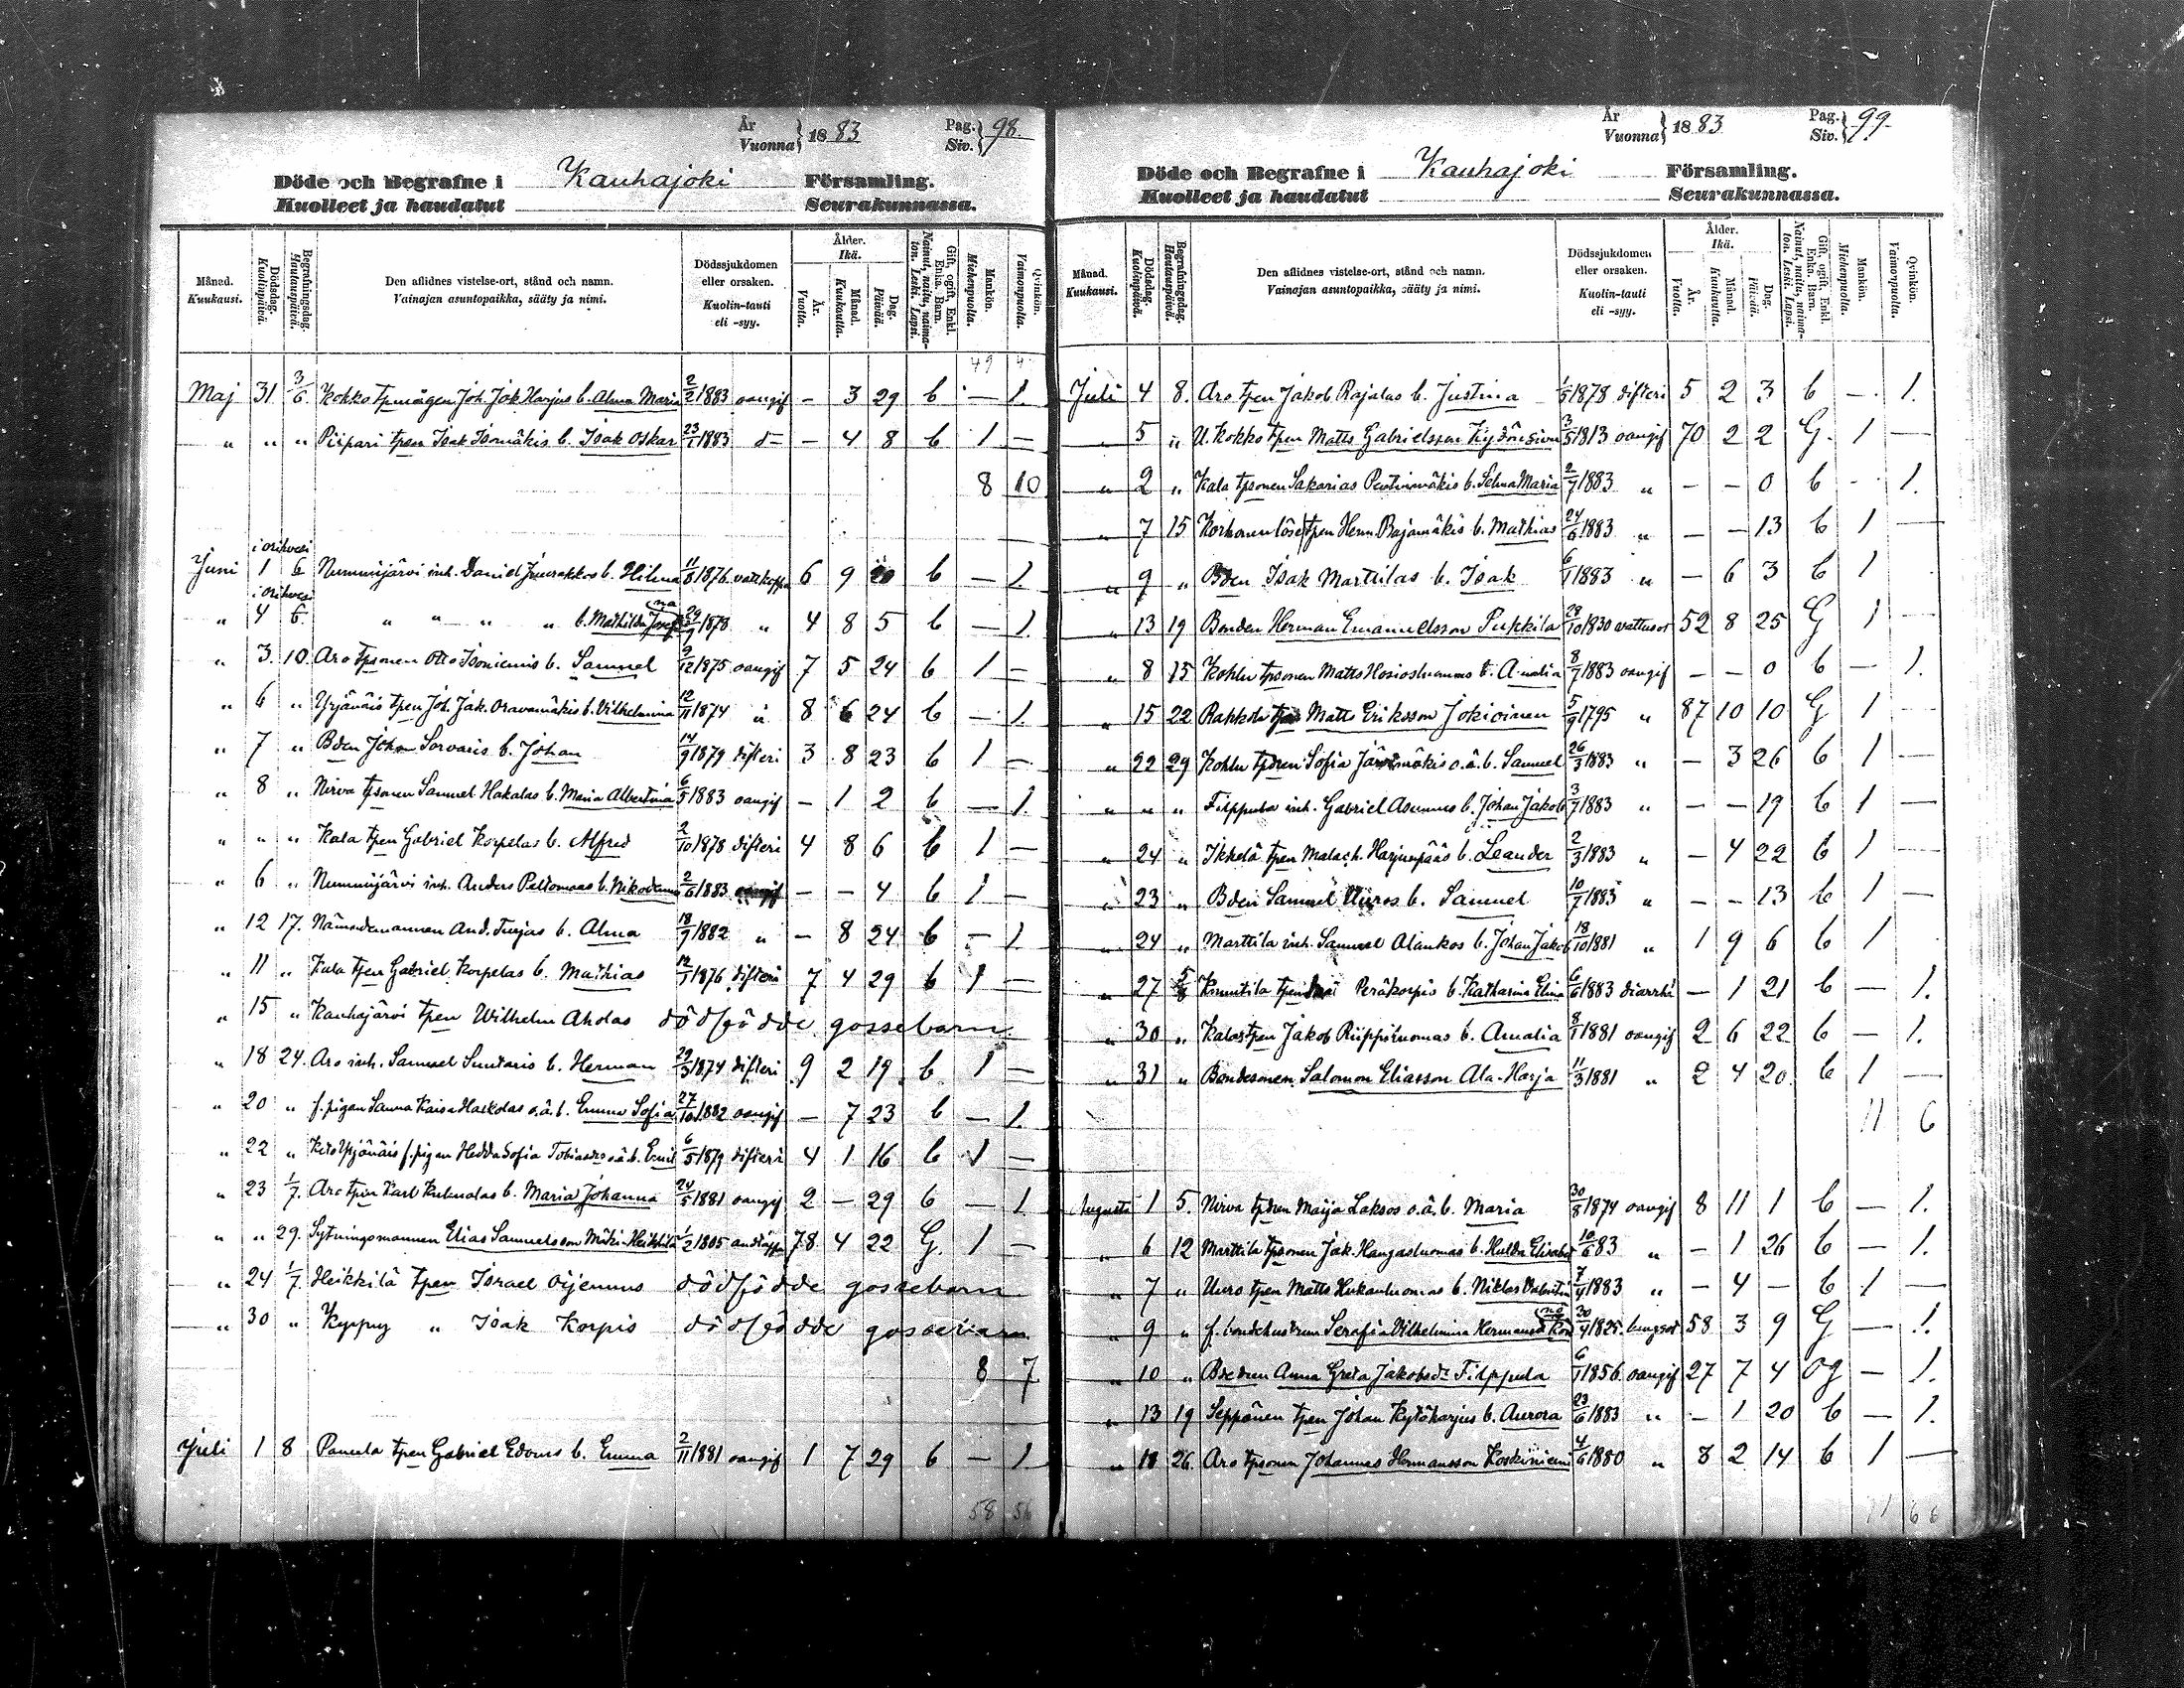 År Vuonna } 1883 Pag. Siv. } 98
Döde och Begrafne i Kauhajoki Församling.
Kuolleet ja haudatut Seurakunnassa.
Månad. Kuukausi. Dödsdag. Kuolinpäivä. Begrafningsdag. Hautauspäivä. Den aflidnes vistelse-ort, stånd och namn. Vainajan asuntopaikka, sääty ja nimi. Dödssjukdomen eller orsaken. Kuolin-tauti eli -syy. Ålder. Ikä. År. Vuotta. Månad. Kuukautta. Dag. Päivää. Gift, ogift, Enkl. Enka. Barn. Nainut, naitu, naimaton. Leski. Lapsi. Mankön. Miehenpuolta. Qvinkön. Vaimonpuolta.
49
Maj 31 3/6 Kokko tpmågen Joh. Jak Harjus b. Alma Maria 2/2 1883 oangif - 3 29 b - 1.
" " " Piipari tpen Isak Isomäkis b. Isak Oskar 23/1 1883 d= - 4 8 b 1 -
8 10
i orihvesi
Juni 1 6 Nummijärvi inh. Daniel b. Hilma 11/8 1876 vattkoppo 6 9 20 b - 1
i orihvesi
" 4 6. " " " " b. Mathilda Josefina 29/9 1878 " 4 8 5 b - 1.
" 3. 10. Aro tpsonen Otto Isoniemis b. Samuel 9/12 1875 oangif 7 5 24 b 1 -
" 6 " Yrjänäis tpen Joh. Jak. Oravamäkis b. Vilhelmina 12/11 1874 " 8 6 24 b - 1.
" 7 " Bden Johan Sorvaris b. Johan 14/9 1879 difteri 3 8 23 b 1 -
" 8 " Nirva tpsonen Samuel Hakalas b. Maria Albertina 6/5 1883 oangif - 1 2 b - 1.
" " " Kala tpen Gabriel Korpelas b. Alfred 2/10 1878 difteri 4 8 6 b 1 -
" 6 " Nummijärvi inh. Anders Peltomaas b. Nikodemus 2/6 1883 oangif - - 4 b 1 -
" 12 17. Nämndemannen And. Turjas b. Alma 18/9 1882 " - 8 24 b - 1
" 11 " Kala tpen Gabriel Korpelas b. Mathias 12/1 1876 difteri 7 4 29 b 1 -
" 15 " Kauhajärvi tpen Wilhelm Aholas dödfödde gossebarn
" 18 24. Aro inh. Samuel Suutaris b. Herman 29/3 1874 difteri 9 2 19 b 1 -
" 20 " f. pigan Sanna Kaisa Harkolas o.ä. b. Emma Sofia 27/10 1882 oangif - 7 23 b - 1.
" 22 " Yrjänäis f. pigan Hedda Sofia o.ä. b. Emil 6/5 1879 difteri 4 1 16 b 1 -
" 23 1/7. Aro tpen Karl b. Maria Johanna 24/5 1881 oangif 2 - 29 b - 1
" " 29. Sytningsmannen Elias Samuelsson Mäki-Heikkilä 1/2 1805 78 4 22 G. 1 -
" 24 1/7. Heikkilä tpen Israel dödfödde gossebarn
" 30 " Kyppy " Isak Korpis dödfödde gossebarn
8 7
Juli 1 8 Panula tpen Gabriel b. Emma 2/11 1881 oangif 1 7 29 b - 1
58 56
År Vuonna } 1883 Pag. Siv. } 99
Döde och Begrafne i Kauhajoki Församling.
Kuolleet ja haudatut Seurakunnassa.
Månad. Kuukausi. Dödsdag. Kuolinpäivä. Begrafningsdag. Hautauspäivä. Den aflidnes vistelse-ort, stånd och namn. Vainajan asuntopaikka, sääty ja nimi. Dödssjukdomen eller orsaken. Kuolin-tauti eli -syy. Ålder. Ikä. År. Vuotta. Månad. Kuukautta. Dag. Päivää. Gift, ogift, Enkl. Enka. Barn. Nainut, naitu, naimaton. Leski. Lapsi. Mankön. Miehenpuolta. Qvinkön. Vaimonpuolta.
Juli 4 8. Aro tpen Jakob Rajalas b. Justina 1/5 1878 difteri 5 2 3 b - 1.
" 5 " U. Kokko tpen Matts Gabrielsson 3/5 1813 oangif 70 2 2 G. 1 -
" 2 " Kala tpsonen Sakarias b. Selma Maria 2/7 1883 " - - 0 b - 1.
" 7 15 Korhonen tpen Herm. Rajamäkis b. Mathias 24/6 1883 " - - 13 b 1 -
" 9 " Bden Isak Marttilas b. Isak 6/1 1883 " - 6 3 b 1
" 13 19 Bonden Herman Emanuelsson Pukkila 28/10 1830 vattusot 52 8 25 G 1 -
" 8 15 Kohlu tpsonen Matts b. Amalia 8/7 1883 oangif - - 0 b - 1.
" 15 22 Matts Eriksson Jokioinen 5/9 1795 " 87 10 10 G 1 -
" 22 29 Kohlu tpdren Sofia o.ä. b. Samuel 26/3 1883 " - 3 26 b 1 -
" " " Filppula inh. Gabriel Asumus b. Johan Jakob 3/7 1883 " - - 19 b 1 -
" 24 " Ikkelä tpen Malach. Harjunpääs b. Leander 2/3 1883 " - 4 22 b 1 -
" 23 " Bden Samuel Uuros b. Samuel 10/7 1883 " - - 13 b 1 -
" 24 " Marttila inh. Samuel Alankos b. Johan Jakob 18/10 1881 " 1 9 6 b 1
" 27 5/8 Knuutila Peräkorpis b. Katharina Elina 6/6 1883 diarrhé - 1 21 b - 1.
" 30 " tpen Jakob Riippiluomas b. Amalia 8/1 1881 oangif 2 6 22 b - 1.
" 31 " Bondesonen Salomon Eliasson Ala-Harja 11/3 1881 " 2 4 20 b 1 -
11 6
Augusti 1 5. Nirva tpdren Maija Laksos o.ä. b. Maria 30/8 1874 oangif 8 11 1 b - 1.
" 6 12 Marttila tpsonen Jak. Hangasluomas b. Hulda Elisabet 10/6 83 " - 1 26 b - 1.
" 7 " Uuro tpen Matts b. Niklas Valentin 7/4 1883 " - 4 - b 1 -
" 9 " f. bondehustrun Serafia Vilhelmina Hermansd 30/4 1825 lungsot 58 3 9 G - 1.
" 10 " Bdedren Anna Greta Jakobsdr Filppula 6/1 1856 oangif 27 7 4 og - 1.
" 13 19 Seppänen tpen Johan Kytöharjus b. Aurora 23/6 1883 " - 1 20 b - 1.
" 18 26. Aro tpsonen Johannes Hermansson Koskiniemi 4/6 1880 " 3 2 14 b 1 -
71 66